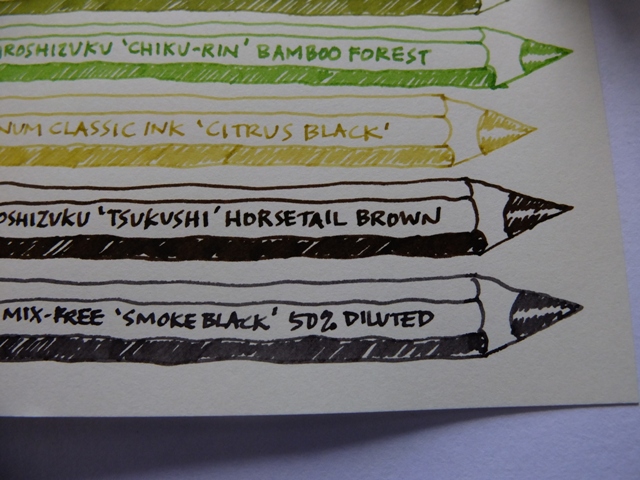 ROSHIZUKU 'CHIKU-RIN' BAMBOO FOREST
NUM CLASSIC INK 'CITRUS BLACK'
OSHIZUKU 'TSUKUSHI' HORSETAIL BROWN
MIX-FREE 'SMOKE BLACK' 50% DILUTED